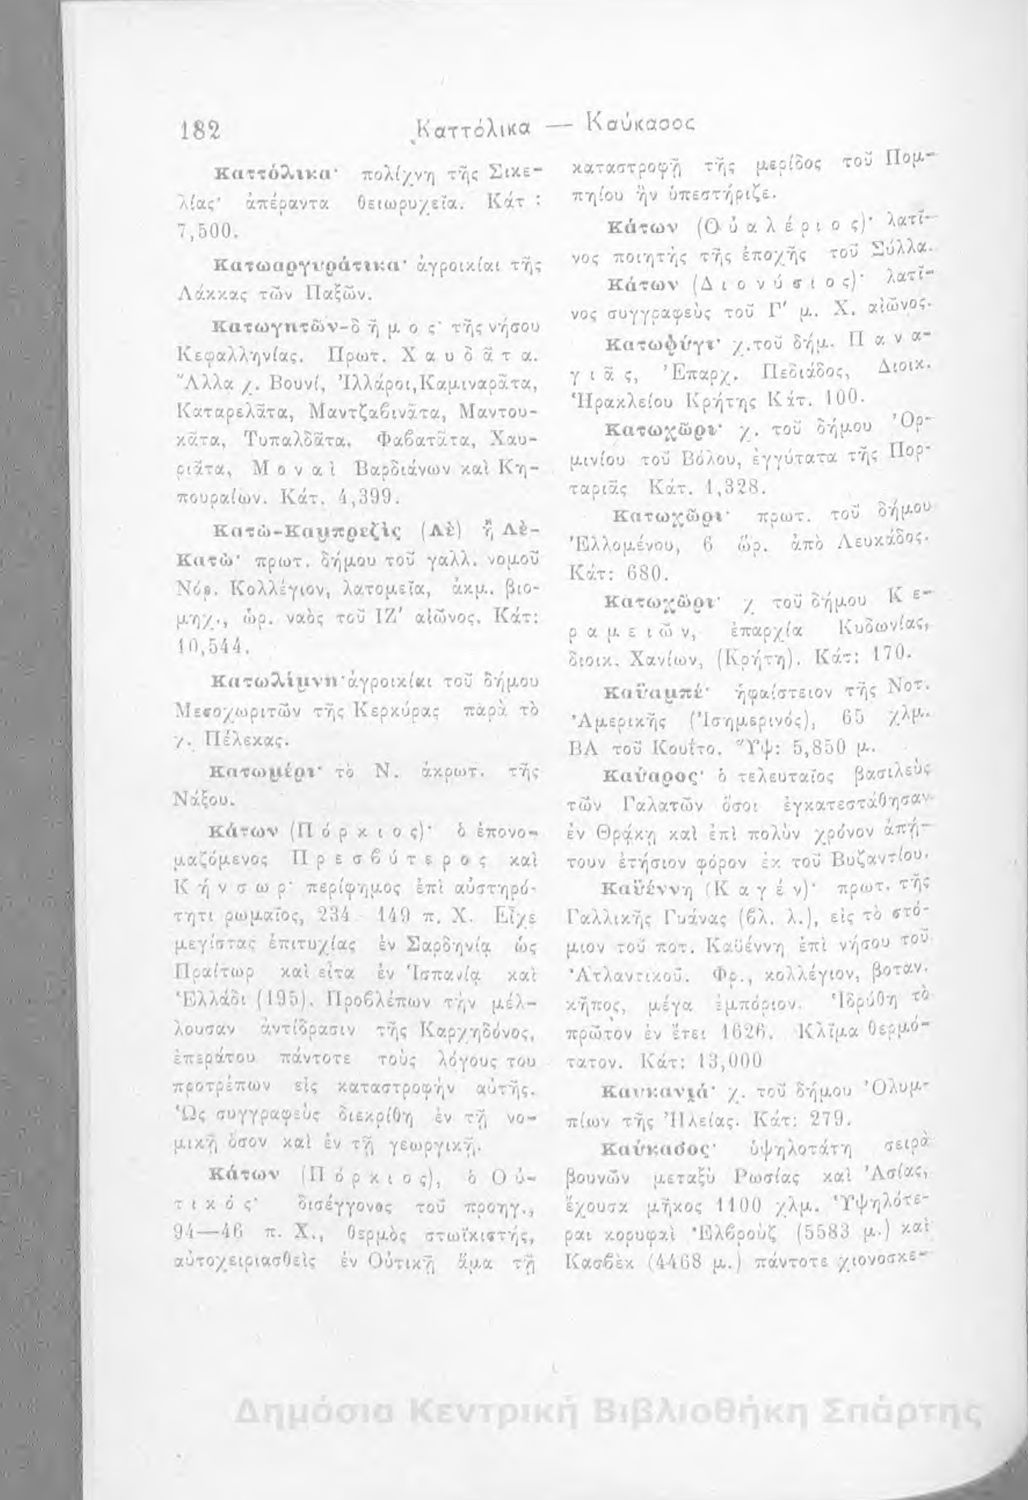 182
Καττόλικα — Καύκασος
Καττόλικα· πολίχνη τῆς Σικε-
λίας· ἀπέραντα θειωρυχεῖα. Κάτ :
7,500.
Κατωαργυράτικα· ἀγροικίαι τῆς
Λάκκας τῶν Παξῶν.
Κατωγητῶν-δῆμος· τῆς νήσου
Κεφαλληνίας. Πρωτ. Χαυδᾶτα.
Ἄλλα χ. Βουνί, Ἰλλάροι, Καμιναρᾶτα,
Καταρελᾶτα, Μαντζαβινᾶτα, Μαντου-
κᾶτα, Τυπαλδᾶτα, Φαβατᾶτα, Χαυ-
ριᾶτα, Μοναὶ Βαρδιάνων καὶ Κη-
πουραίων. Κάτ. 4,399.
Κατὼ-Καμπρεζὶς (Λὲ) ἢ Λὲ-
Κατὼ· πρωτ. δήμου τοῦ γαλλ. νομοῦ
Νόρ. Κολλέγιον, λατομεῖα, ἀκμ. βιο-
μηχ., ὡρ. ναὸς τοῦ ΙΖ' αἰῶνος. Κάτ:
10,544.
Κατωλίμνη· ἀγροικίαι τοῦ δήμου
Μεσοχωριτῶν τῆς Κερκύρας παρὰ τὸ
χ. Πέλεκας.
Κατωμέρι· τὸ Ν. ἀκρωτ. τῆς
Νάξου.
Κάτων (Πόρκιος)· ὁ ἐπονο-
μαζόμενος Πρεσβύτερος καὶ
Κήνσωρ· περίφημος ἐπὶ αὐστηρό-
τητι ρωμαῖος, 234—149 π. Χ. Εἶχε
μεγίστας ἐπιτυχίας ἐν Σαρδηνίᾳ ὡς
Πραίτωρ καὶ εἶτα ἐν Ἱσπανίᾳ καὶ
Ἑλλάδι (195). Προβλέπων τὴν μέλ-
λουσαν ἀντίδρασιν τῆς Καρχηδόνος,
ἐπεράτου πάντοτε τοὺς λόγους του
προτρέπων εἰς καταστροφὴν αὐτῆς.
Ὡς συγγραφεὺς διεκρίθη ἐν τῇ νο-
μικῇ ὅσον καὶ ἐν τῇ γεωργικῇ.
Κάτων (Πόρκιος), ὁ Οὐ-
τικός· δισέγγονος τοῦ προηγ.,
94—46 π. Χ., θερμὸς στωϊκιστής,
αὐτοχειριασθεὶς ἐν Οὐτικῇ ἅμα τῇ
καταστροφῇ τῆς μερίδος τοῦ Πομ-
πηίου ἣν ὑπεστήριζε.
Κάτων (Οὐαλέριος)· λατῖ-
νος ποιητὴς τῆς ἐποχῆς τοῦ Σύλλα.
Κάτων (Διονύσιος)· λατῖ-
νος συγγραφεὺς τοῦ Γ' μ. Χ. αἰῶνος.
Κατωφύγι· χ. τοῦ δήμ. Πανα-
γιᾶς, Ἐπαρχ. Πεδιάδος, Διοικ.
Ἡρακλείου Κρήτης Κάτ. 100.
Κατωχῶρι· χ. τοῦ δήμου Ὀρ-
μινίου τοῦ Βόλου, ἐγγύτατα τῆς Πορ-
ταριᾶς Κάτ. 1,328.
Κατωχῶρι· πρωτ. τοῦ δήμου
Ἑλλομένου, 6 ὥρ. ἀπὸ Λευκάδος.
Κάτ: 680.
Κατωχῶρι· χ τοῦ δήμου Κε-
ραμειῶν, ἐπαρχία Κυδωνίας,
διοικ. Χανίων, (Κρήτη). Κάτ: 170.
Καϋαμπέ· ἡφαίστειον τῆς Νοτ.
Ἀμερικῆς (Ἰσημερινός), 65 χλμ.
ΒΑ τοῦ Κουΐτο. Ὕψ: 5,850 μ.
Καύαρος· ὁ τελευταῖος βασιλεὺς
τῶν Γαλατῶν ὅσοι ἐγκατεστάθησαν
ἐν Θρᾴκῃ καὶ ἐπὶ πολὺν χρόνον ἀπῄ-
τουν ἐτήσιον φόρον ἐκ τοῦ Βυζαντίου.
Καϋέννη (Καγέν)· πρωτ. τῆς
Γαλλικῆς Γυάνας (βλ. λ.), εἰς τὸ στό-
μιον τοῦ ποτ. Καϋέννη ἐπὶ νήσου τοῦ
Ἀτλαντικοῦ. Φρ., κολλέγιον, βοταν.
κῆπος, μέγα ἐμπόριον. Ἱδρύθη τὸ
πρῶτον ἐν ἔτει 1626. Κλῖμα θερμό-
τατον. Κάτ: 13,000
Καυκανιά· χ. τοῦ δήμου Ὀλυμ-
πίων τῆς Ἠλείας. Κάτ: 279.
Καύκασος· ὑψηλοτάτη σειρὰ
βουνῶν μεταξὺ Ρωσίας καὶ Ἀσίας,
ἔχουσα μῆκος 1100 χλμ. Ὑψηλότε-
ραι κορυφαὶ Ἐλβροὺζ (5583 μ.) καὶ
Κασβὲκ (4468 μ.) πάντοτε χιονοσκε-
Δημόσια Κεντρική Βιβλιοθήκη Σπάρτης